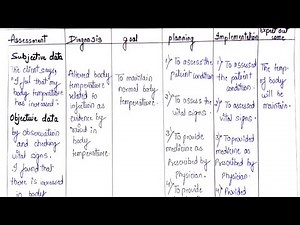 Assessment
Diagnosis
goal
planning
Implementation
Expect out
come
Subjective data
The client says
"I feel that my
body temperature
has increased".
Objective data
by observation
and checking
vital signs.
I found that
there is increased
in body
Altered body
temperature
related to
infection as
evidence by
raised in body
temperature.
To maintain
normal body
temperature.
1) To assess the
patient condition
2) To assess the
vital signs.
3) To provide
medicine as
Prescribed by
Physician.
4) To provide
1) To assessed
the patient
condition.
2) To assessed
vital signs.
3) To provided
medicine as
Prescribed by
Physician.
4) Provided
The temp
of body
will be
maintain.